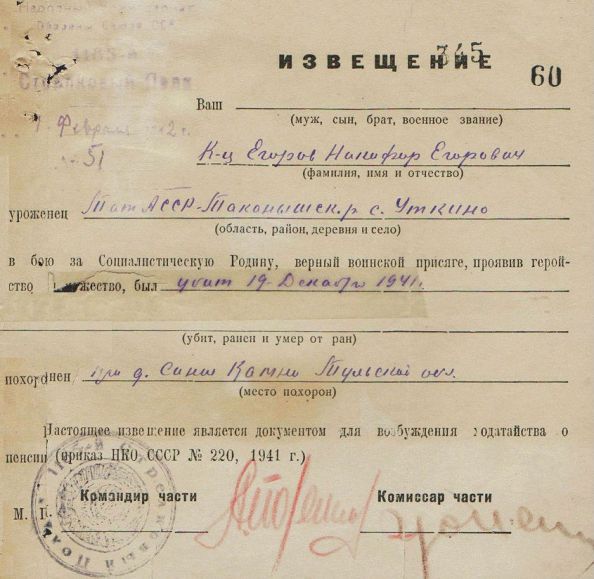 1183-й
Стрелковый Полк
ИЗВЕЩЕНИЕ
345
60
Февраля
51
Ваш
(муж, сын, брат, военное звание)
К-ц Егоров Никифор Егорович
(фамилия, имя и отчество)
уроженец Тат АССР с. Уткино
(область, район, деревня и село)
в бою за Социалистическую Родину, верный воинской присяге, проявив герой-
ство мужество, был убит 19 Декабря 1941г.
(убит, ранен и умер от ран)
похоронен при д. Тульской обл.
(место похорон)
Настоящее извещение является документом для возбуждения ходатайства о
пенсии (приказ НКО СССР № 220, 1941 г.)
Командир части
Комиссар части
М. П.